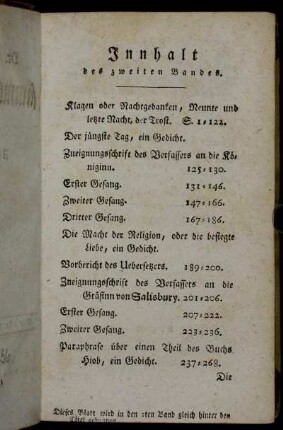 Innhalt
des zweiten Bandes.
Klagen oder Nachtgedanken, Neunte und
letzte Nacht, der Trost. S. 1=122.
Der jüngste Tag, ein Gedicht.
Zueignungsschrift des Verfassers an die Kö-
niginn. 125=130.
Erster Gesang. 131=146.
Zweiter Gesang. 147=166.
Dritter Gesang. 167=186.
Die Macht der Religion, oder die besiegte
Liebe, ein Gedicht.
Vorbericht des Uebersetzers. 189=200.
Zueignungsschrift des Verfassers an die
Gräfinn von Salisbury. 201=206.
Erster Gesang. 207=222.
Zweiter Gesang. 223=236.
Paraphrase über einen Theil des Buchs
Hiob, ein Gedicht. 237=268.
Die
Dieses Blatt wird in den 2ten Band gleich hinter den
Titel